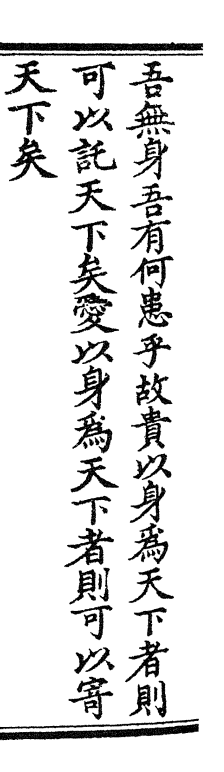 吾無身吾有何患乎故貴以身爲天下者則
可以託天下矣愛以身爲天下者則可以寄
天下矣